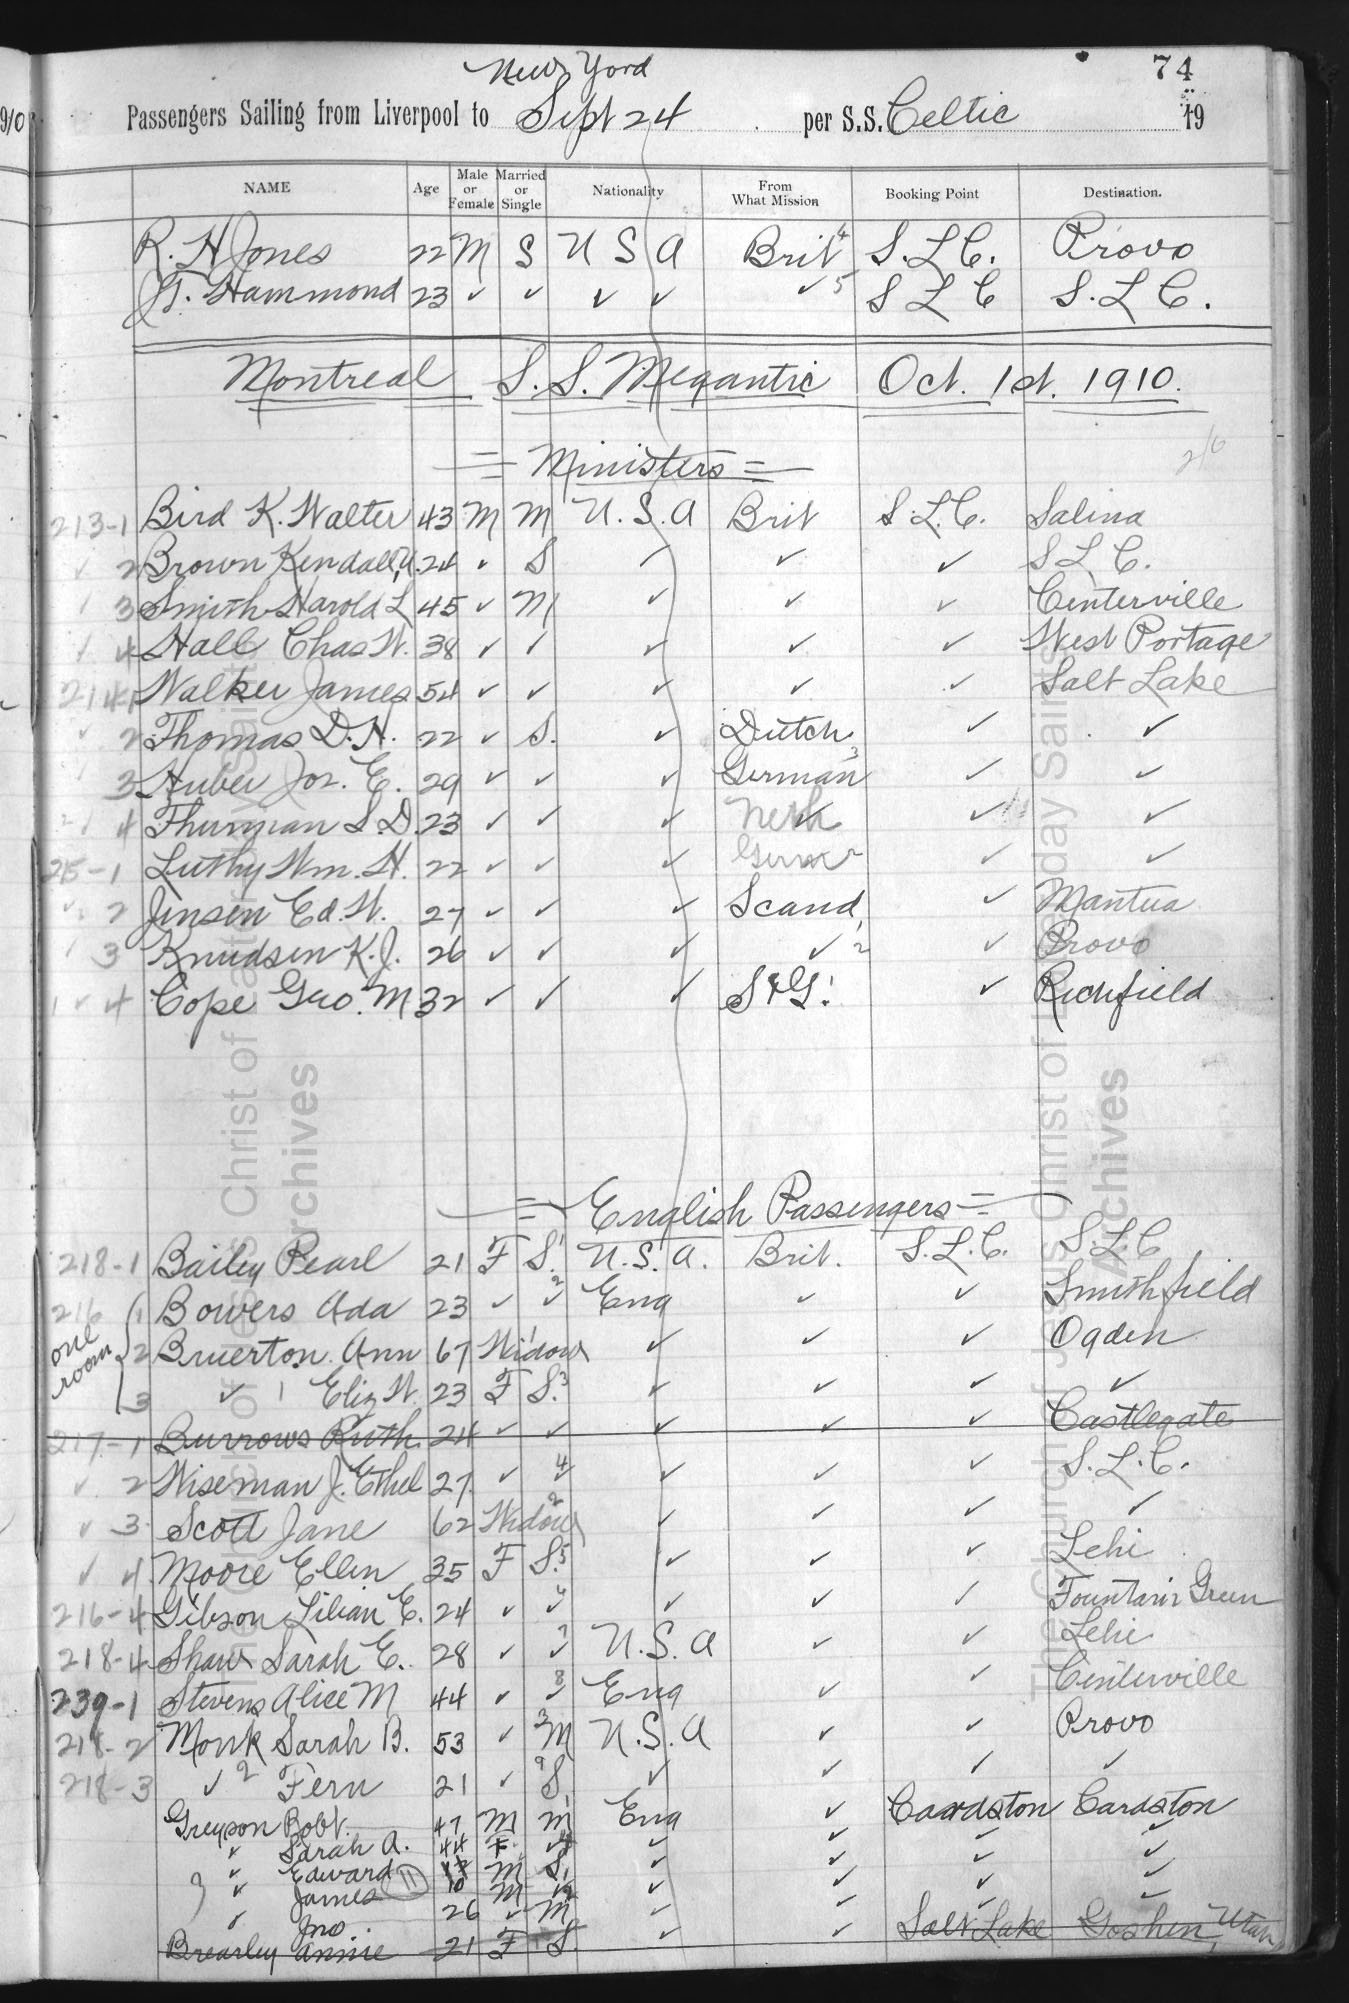 74
New York
Passengers Sailing from Liverpool to Sept 24 per S.S. Celtic 19
910
NAME Age Male or Female Married or Single Nationality From What Mission Booking Point Destination.
R. H Jones 22 M S U S A Brit 4 S. L C. Provo
Hammond 23 ✓ ✓ ✓ ✓ ✓ 5 S L C S. L C.
Montreal S. S. Megantic Oct. 1st. 1910.
= Ministers =
213-1 Bird K. Walter 43 M M U.S.A Brit S.L.C. Salina
✓ 2 Brown Kendall 24 ✓ S ✓ ✓ ✓ S L C.
✓ 3 Smith Harold L 45 ✓ M ✓ ✓ ✓ Centerville
✓ 4 Hall Chas W. 38 ✓ ✓ ✓ ✓ ✓ West Portage
214-1 Walker James 54 ✓ ✓ ✓ ✓ ✓ Salt Lake
✓ 2 Thomas D. H. 22 ✓ S. ✓ Dutch ✓ ✓
✓ 3 Huber Jos. E. 29 ✓ ✓ ✓ German 3 ✓ ✓
✓ 4 Thurman S. D. 23 ✓ ✓ ✓ Neth ✓ ✓
215-1 Luthy Wm. H. 22 ✓ ✓ ✓ German ✓ ✓
✓ 2 Jensen Ed. W. 27 ✓ ✓ ✓ Scand, ✓ Mantua
✓ 3 Knudsen K. J. 26 ✓ ✓ ✓ ✓ 2 ✓ Provo
✓ 4 Cope Geo. M 32 ✓ ✓ ✓ S & G. ✓ Richfield
= English Passengers =
218-1 Bailey Pearl 21 F S. 1 U.S.A. Brit. S.L.C. S L C
216 1 Bowers Ada 23 ✓ ✓ 2 Eng ✓ ✓ Smithfield
one room 2 Bruerton Ann 67 Widow 1 ✓ ✓ ✓ Ogden
3 ✓ Eliz W. 23 F S. 3 ✓ ✓ ✓ ✓
217-1 Burrows Ruth. 24 ✓ ✓ ✓ ✓ ✓ Castlegate
✓ 2 Wiseman J. Ethel 27. ✓ ✓ 4 ✓ ✓ ✓ S. L. C.
✓ 3 Scott Jane 62 Widow 2 ✓ ✓ ✓ ✓
✓ 4 Moore Ellen 35 F S. 5 ✓ ✓ ✓ Lehi
216-4 Gibson Lilian E. 24 ✓ ✓ ✓ ✓ ✓ Fountain Green
218-4 Shaw Sarah E. 28 ✓ ✓ 7 U.S.A ✓ ✓ Lehi
239-1 Stevens Alice M 44 ✓ ✓ 8 Eng ✓ ✓ Centerville
218-2 Monk Sarah B. 53 ✓ 3 M U.S.A ✓ ✓ Provo
218-3 ✓ 2 Fern 21 ✓ 9 S. ✓ ✓ ✓ ✓
Greyson Robt. 47 M M 1 Eng ✓ Cardston Cardston
✓ Sarah A. 44 F ✓ 4 ✓ ✓ ✓ ✓
✓ Edward 17 M S. ✓ ✓ ✓ ✓
✓ James 11 10 M ✓ 2 ✓ ✓ ✓ ✓
✓ Jno. 26 ✓ M ✓ ✓ ✓ ✓
Brearley Annie 21 F S. ✓ ✓ Salt Lake Goshen, Utah
The Church of Jesus Christ of Latter-day Saints
Archives
The Church of Jesus Christ of Latter-day Saints
Archives